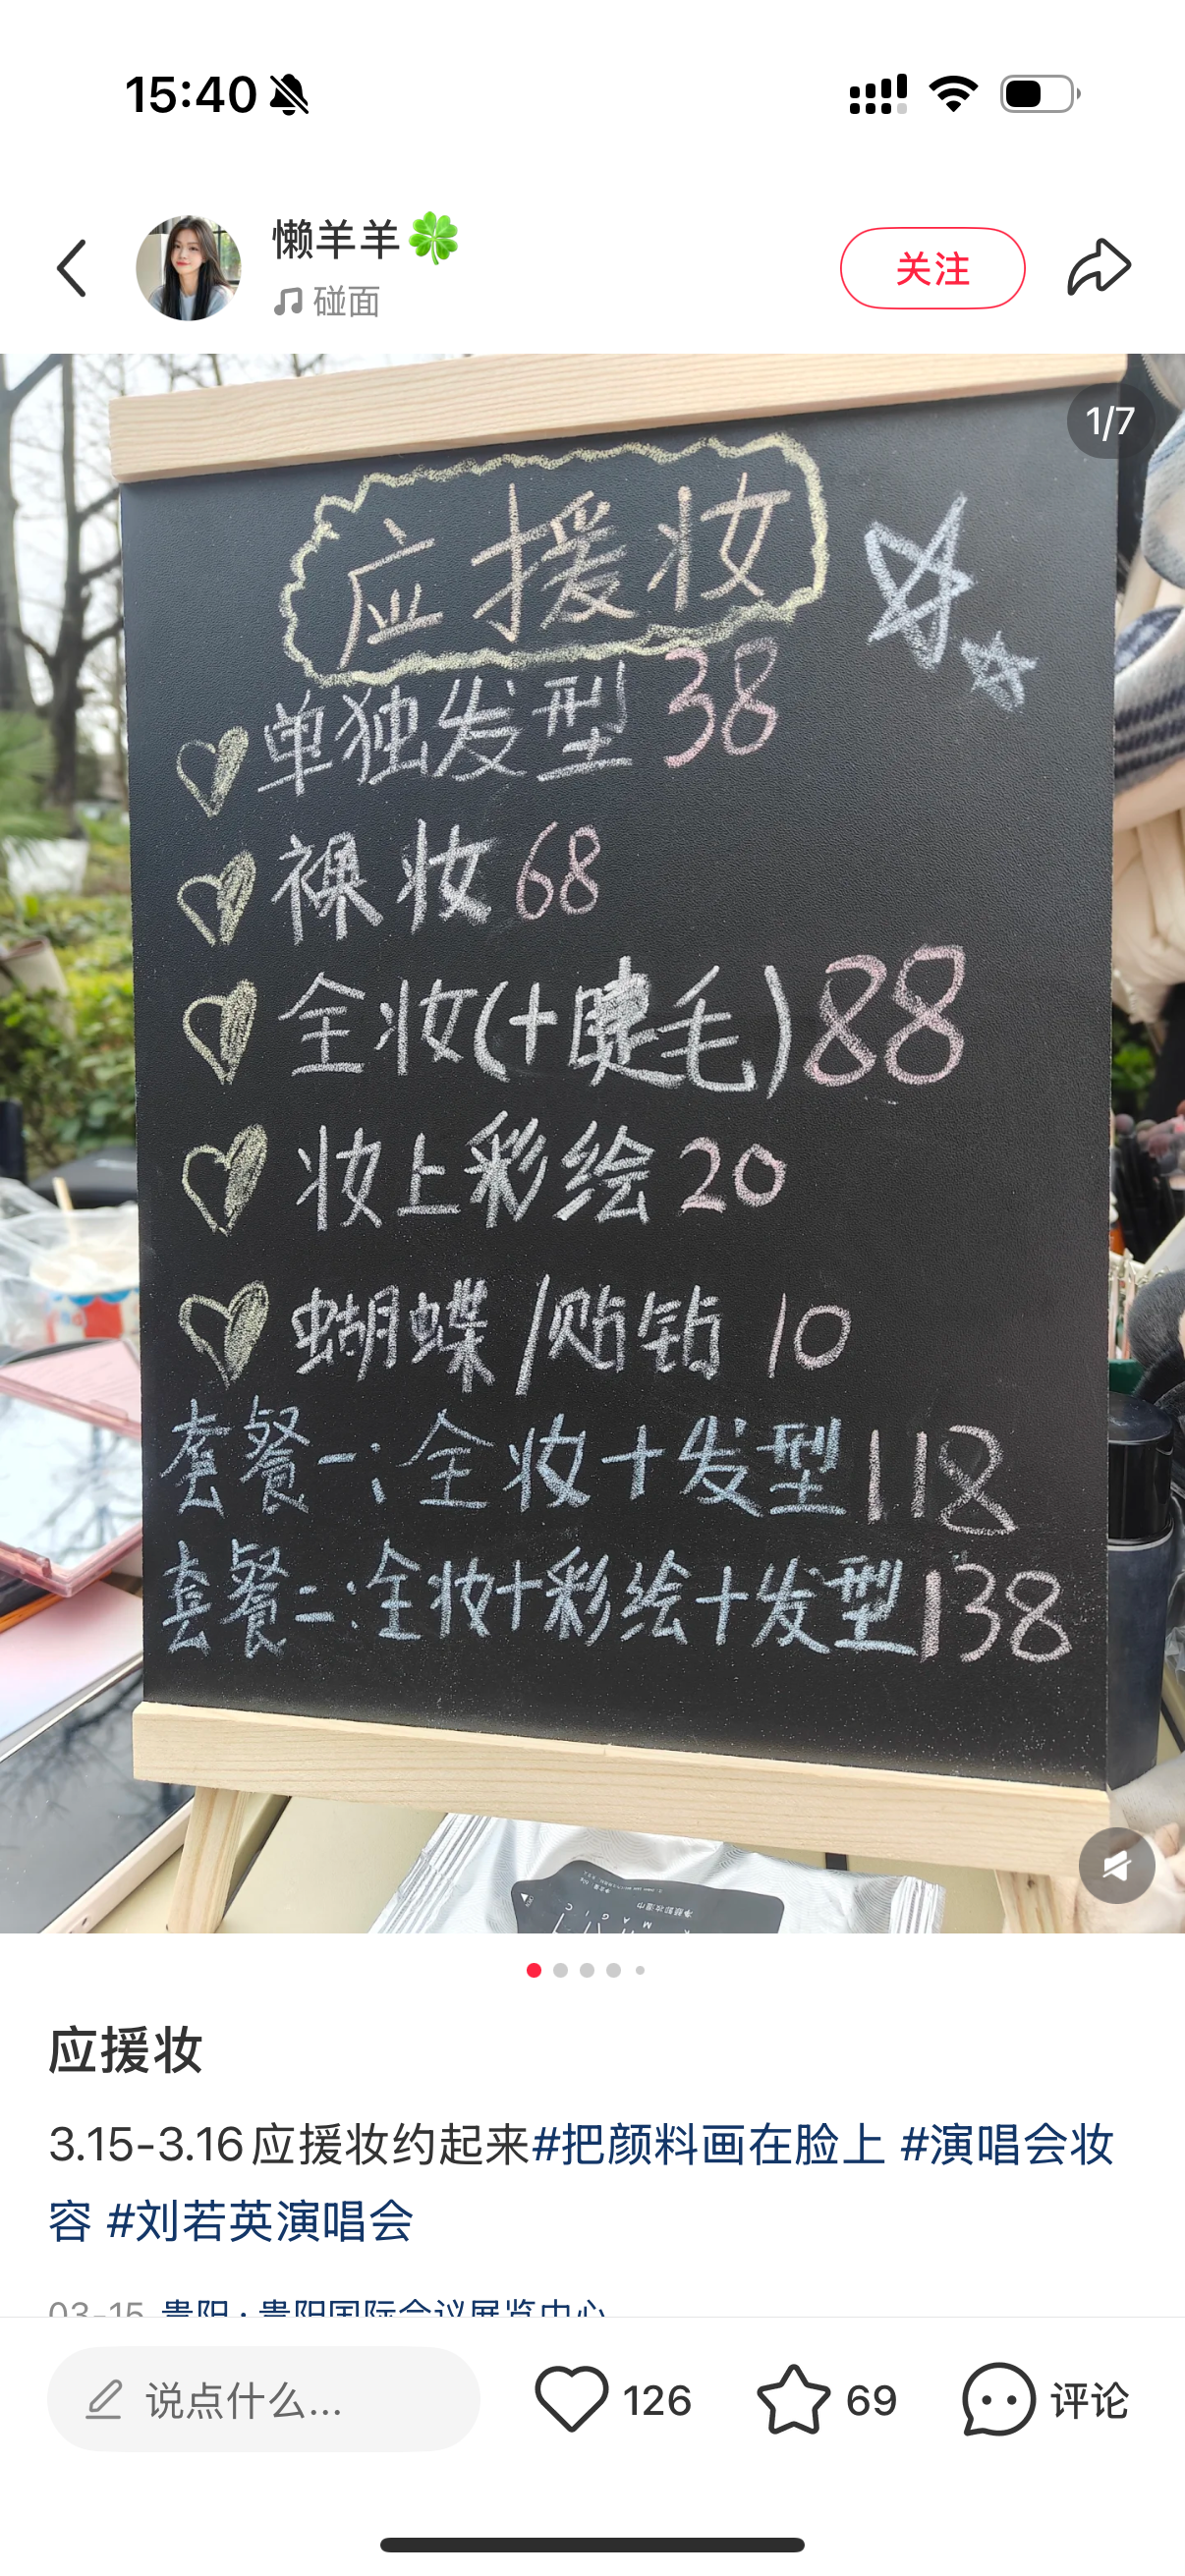 15:40
懒羊羊🍀
碰面
关注
1/7
应援妆
单独发型 38
裸妆 68
全妆(+睫毛) 88
妆上彩绘 20
蝴蝶/贴钻 10
套餐一:全妆+发型 118
套餐二:全妆+彩绘+发型 138
应援妆
3.15-3.16应援妆约起来#把颜料画在脸上 #演唱会妆
容 #刘若英演唱会
03-15 贵阳·贵阳国际会议展览中心
说点什么...
126
69
评论